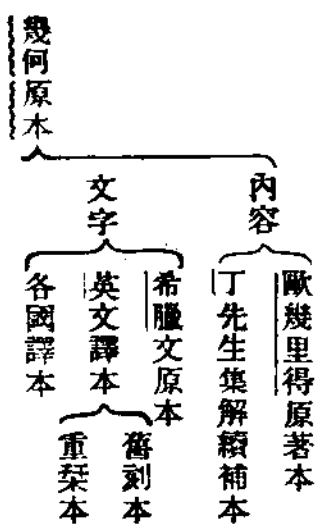 幾何原本
內容
歐幾里得原著本
丁先生集解續補本
文字
希臘文原本
英文譯本
舊刻本
重栞本
各國譯本